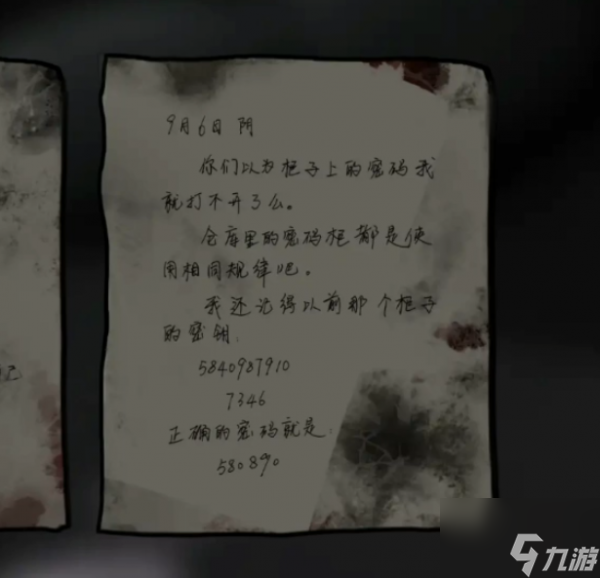 9月6日 阴
你们以为柜子上的密码我
就打不开了么。
仓库里的密码柜都是使
用相同规律吧。
我还记得以前那个柜子
的密钥.
5840987910
7346
正确的密码就是:
580890
己
九游